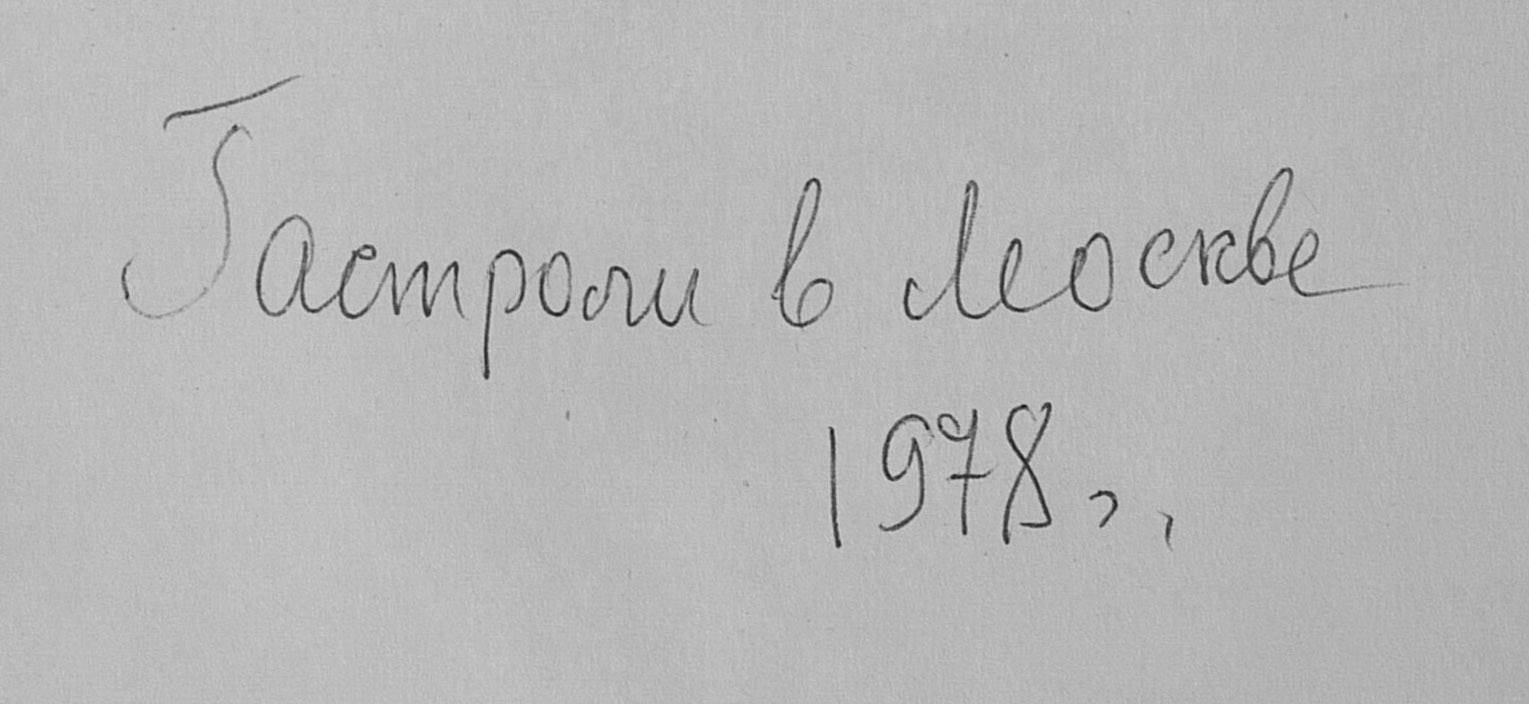 Гастроли в Москве
1978 г.